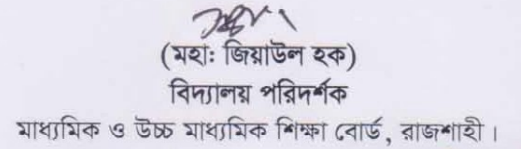 (মহা: জিয়াউল হক)
বিদ্যালয় পরিদর্শক
মাধ্যমিক ও উচ্চ মাধ্যমিক শিক্ষা বোর্ড, রাজশাহী।